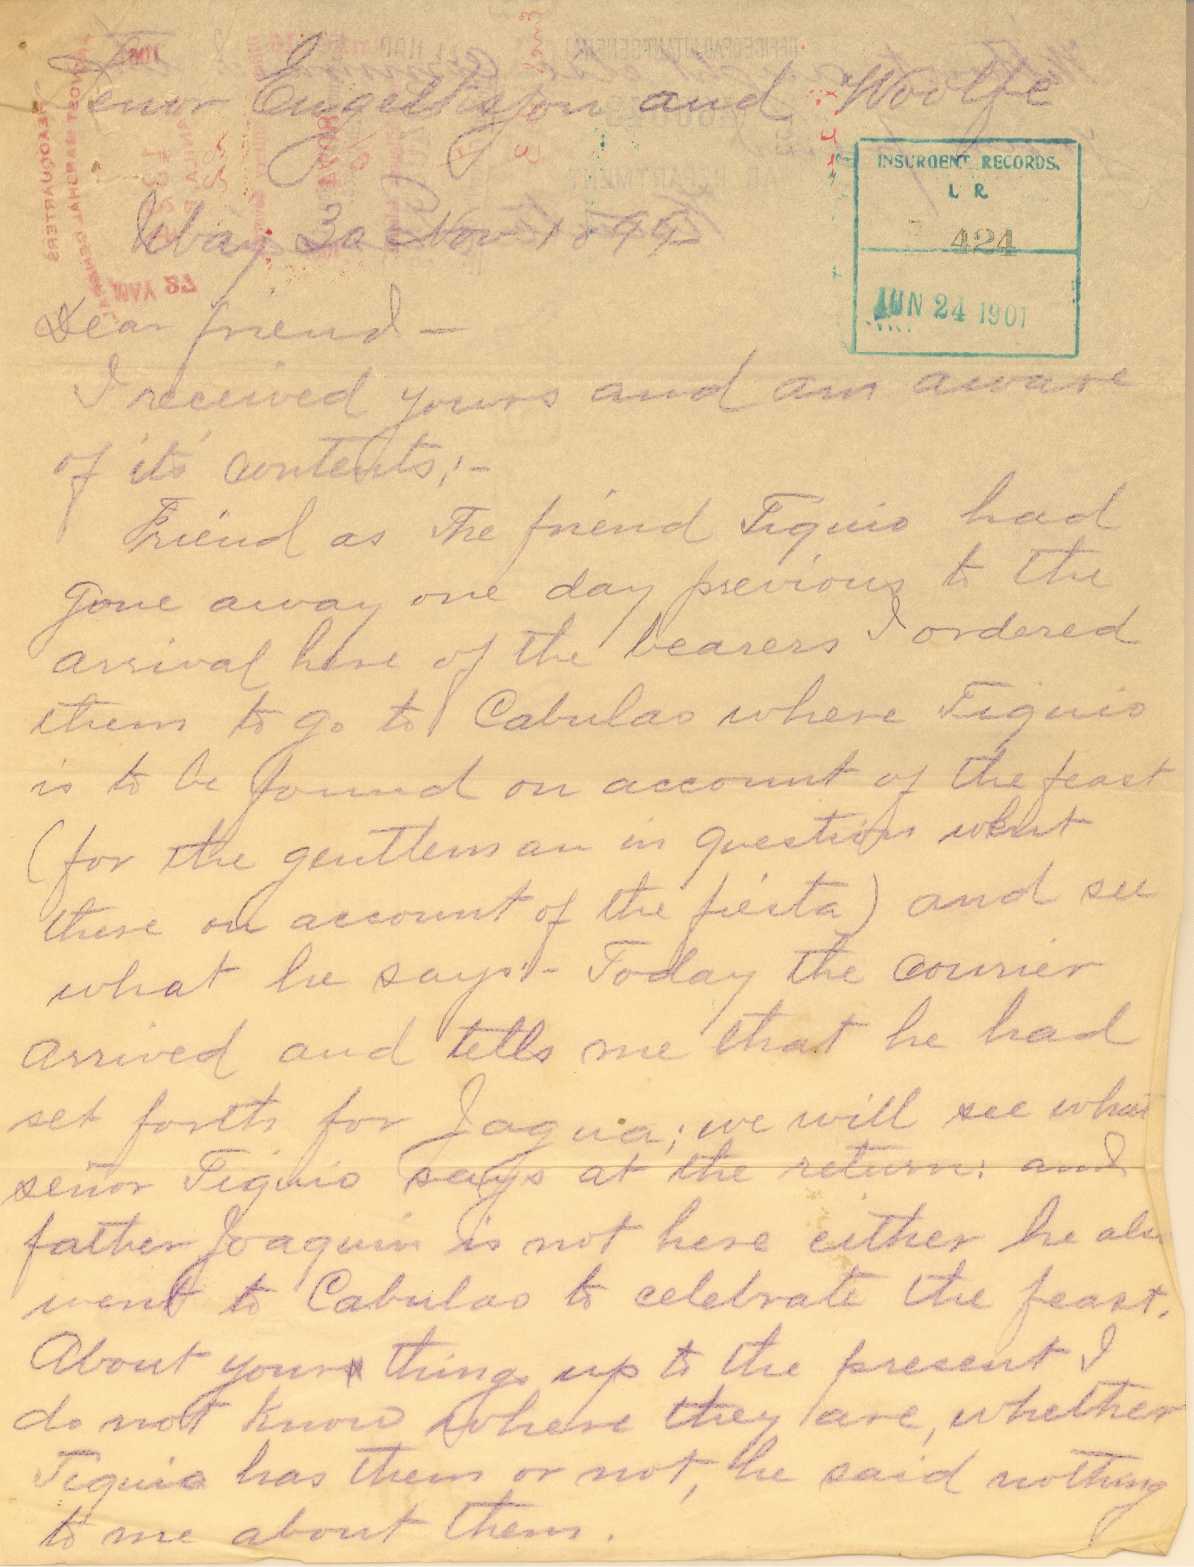 Senor Engeltjon and Woolfe
INSURGENT RECORDS.
L R
424
JUN 24 1901
Ubay 30 Nov 1899
Dear friend —
I received yours and am aware
of it's contents;-
Friend as The friend Tiquio had
gone away one day previous to the
arrival here of the bearers I ordered
them to go to Cabulao where Tiquio
is to be found on account of the feast
(for the gentleman in question went
there on account of the fiesta) and see
what he says:- Today the courier
arrived and tells me that he had
set forth for Jagua; we will see what
señor Tiquio says at the return: and
father Joaquin is not here either he also
went to Cabulao to celebrate the feast.
About your things up to the present I
do not know where they are, whether
Tiquio has them or not, he said nothing
to me about them.